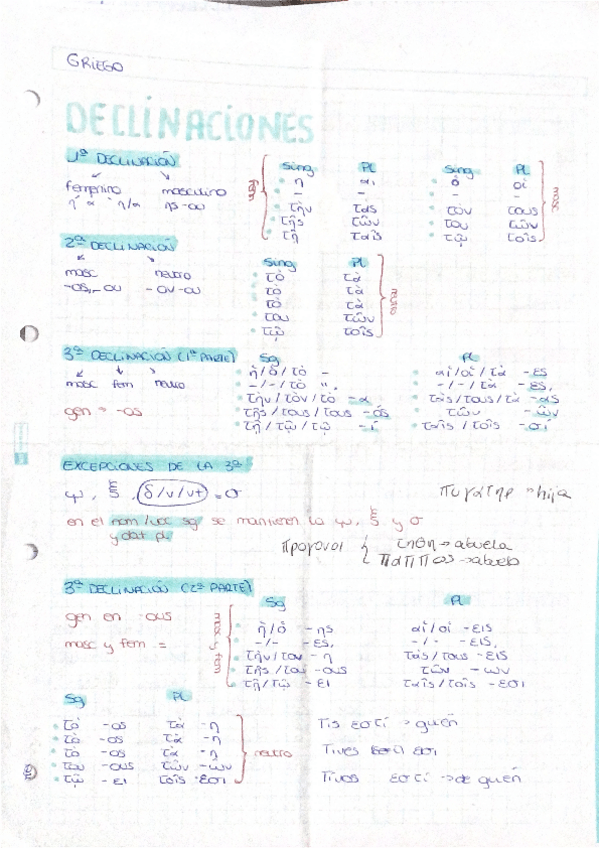 GRIEGO
DECLINACIONES
1ª DECLINACIÓN
femenino masculino
ή ά ή/α ης-ου
fem
Sing Pl
ἡ αἱ
- -
τὴν τὰς
τῆς τῶν
τῇ ταῖς
Sing Pl
ὁ οἱ
- -
τὸν τους
του τῶν
τῷ τοῖς
masc
2ª DECLINACIÓN
masc neutro
-ος, -ου -ον -ου
Sing Pl
τὸ τὰ
τὸ τὰ
τὸ τὰ
του τῶν
τῷ τοῖς
neutro
3ª DECLINACIÓN (1ª PARTE)
masc fem neutro
gen = -os
Sg Pl
ἡ/ὁ/τὸ - αἱ/οἱ/τὰ -ες
-/-/τὸ ". -/-/τὰ -ες,
τὴν/τὸν/τὸ -α τὰς/τους/τὰ -ας
τῆς/τους/τους -ός τῶν -ῶν
τῇ/τῷ/τῷ -ί ταῖς/τοῖς -σί
EXCEPCIONES DE LA 3ª
ψ, ξ, (δ/ν/ντ) = σ
πυγάτηρ = hija
en el nom/voc sg se mantienen la ψ, ξ y σ
y dat pl
προγονοι { τηθη → abuela
παππος → abuelo
3ª DECLINACIÓN (2ª PARTE)
gen en -ους
masc y fem =
masc y fem
Sg Pl
ἡ/ὁ -ης αἱ/οἱ -εις
-/- -ες, -/- -εις,
τὴν/τον -η τὰς/τους -εις
τῆς/του -ους τῶν -ων
τῇ/τῷ -ει ταῖς/τοῖς -εσι
Sg Pl
τὸ -ος τὰ -η
τὸ -ος τὰ -η
τὸ -ος τὰ -η
του -ους τῶν -ων
τῷ -ει τοῖς -εσι
neutro
Τις εστί → quién
Τινες εσι
Τινος εστί → de quién